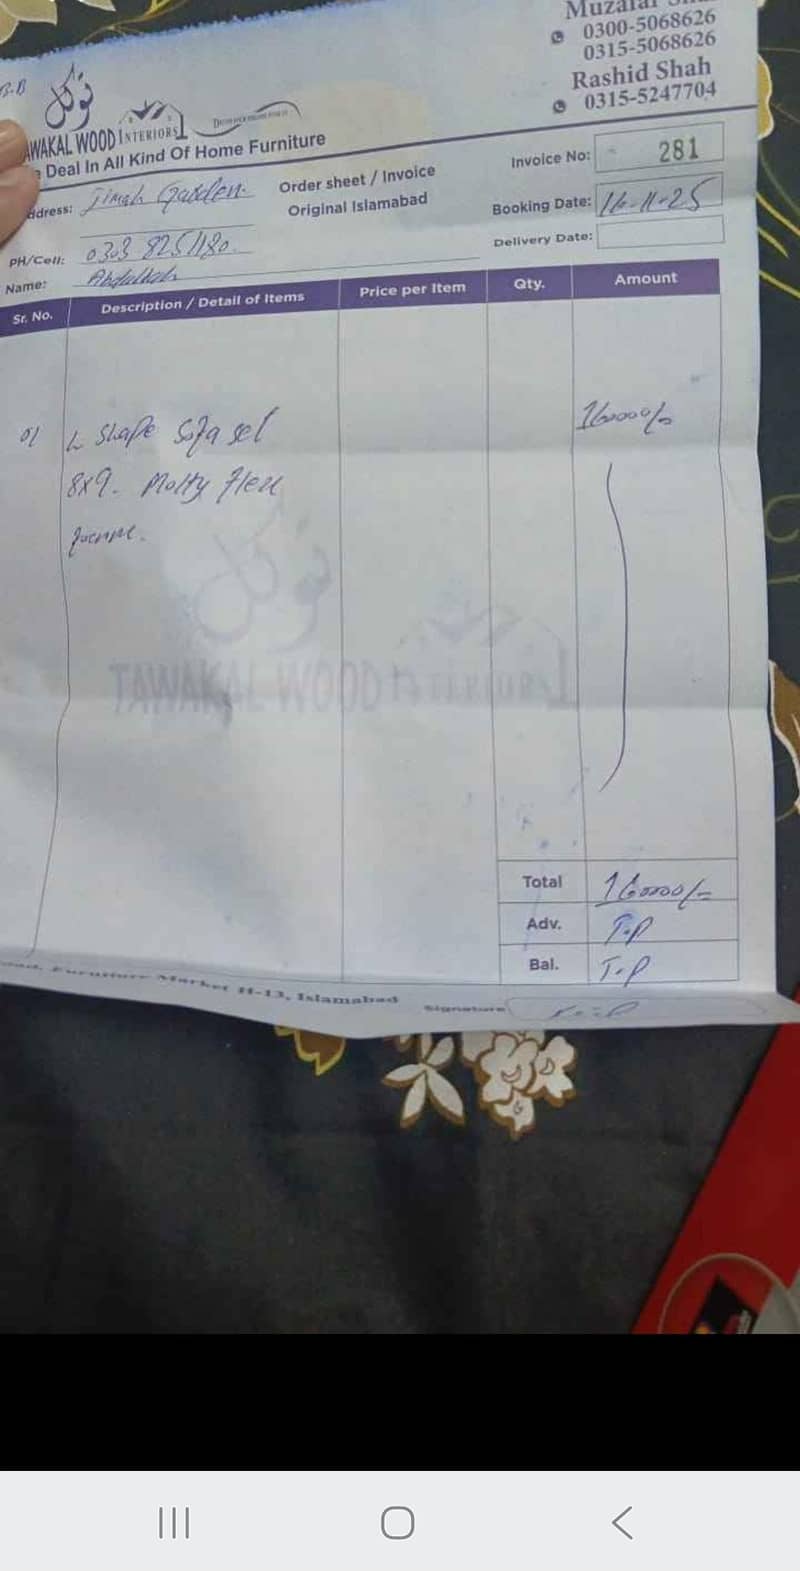 Muzafar
0300-5068626
0315-5068626
Rashid Shah
0315-5247704
توكل
AWAKAL WOOD INTERIORS
Deal In All Kind Of Home Furniture
Order sheet / Invoice
Original Islamabad
Invoice No: 281
Booking Date: 16-11-25
Delivery Date:
ddress: Jinah Garden.
PH/Cell: 0303 8251180.
Name: Abdullah
Sr. No. Description / Detail of Items Price per Item Qty. Amount
01 L Shape Sofa set 160000/-
8x9. Molty flex
TAWAKAL WOOD INTERIORS
Total 160000/-
Adv. T.P
Bal. T.P
Furniture Market H-13, Islamabad
Signature